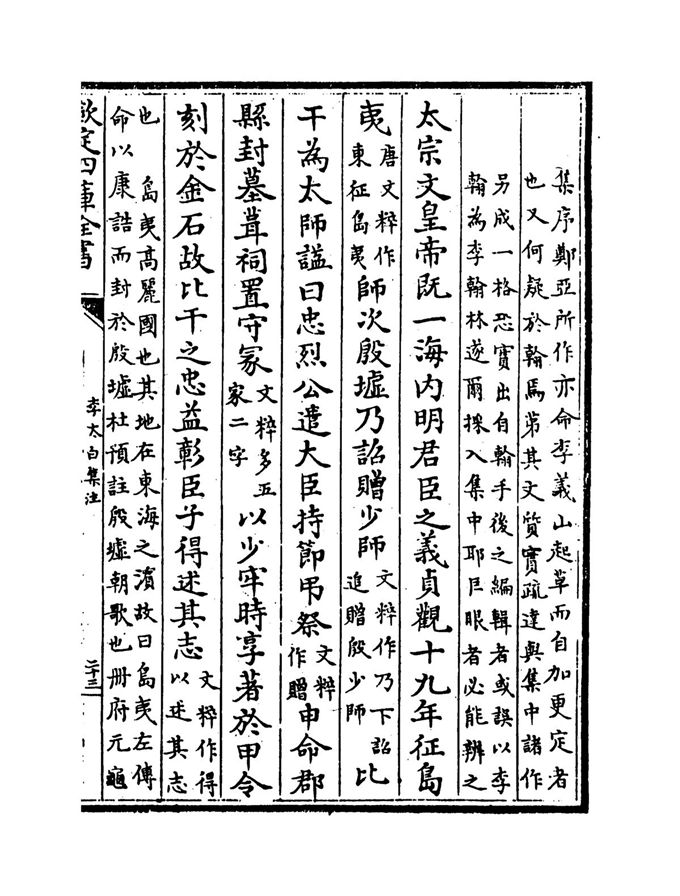 集序鄭亞所作亦命李義山起草而自加更定者
也又何疑於翰焉第其文質實疏達與集中諸作
另成一格恐實出自翰手後之編輯者或誤以李
翰為李翰林遂爾採入集中耶巨眼者必能辨之
太宗文皇帝既一海内明君臣之義貞觀十九年征島
夷唐文粹作東征島夷師次殷墟乃詔贈少師文粹作乃下詔追贈殷少師比
干為太師諡曰忠烈公遣大臣持節弔祭文粹作贈申命郡
縣封墓葺祠置守冢文粹多五家二字以少牢時享著於甲令
刻於金石故比干之忠益彰臣子得述其志文粹作得以述其志
也　島夷髙麗國也其地在東海之濵故曰島夷左傳
命以康誥而封於殷墟杜預註殷墟朝歌也册府元龜
欽定四庫全書
李太白集注
二十三